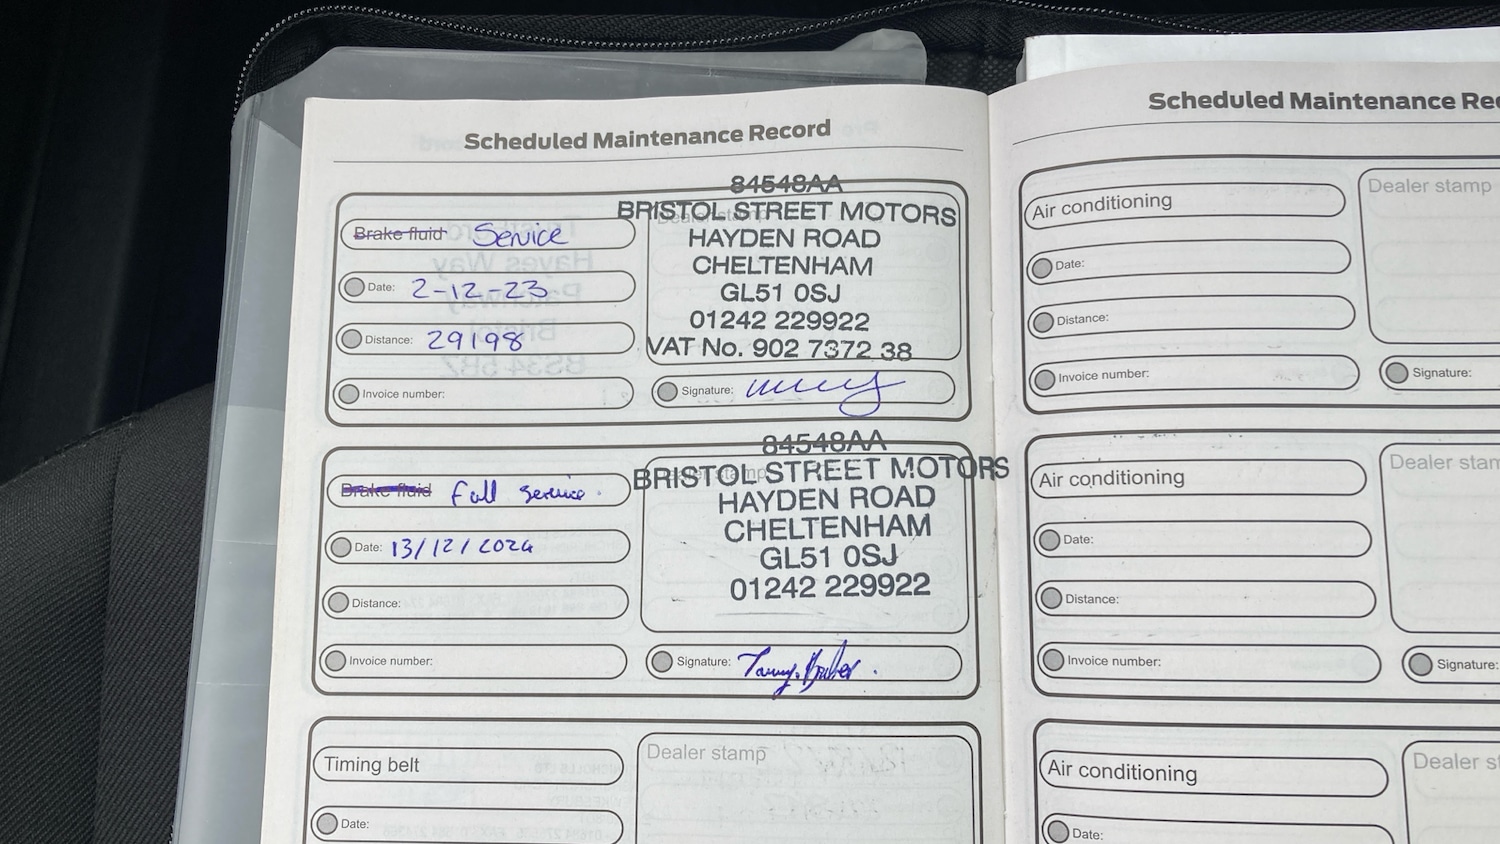 Scheduled Maintenance Record
84548AA
BRISTOL STREET MOTORS
HAYDEN ROAD
CHELTENHAM
GL51 0SJ
01242 229922
VAT No. 902 7372 38
Brake fluid Service
Date: 2-12-23
Distance: 29198
Invoice number:
Signature:
84548AA
BRISTOL STREET MOTORS
HAYDEN ROAD
CHELTENHAM
GL51 0SJ
01242 229922
Brake fluid full service.
Date: 13/12/2024
Distance:
Invoice number:
Signature:
Timing belt
Dealer stamp
Date:
Scheduled Maintenance Rec
Air conditioning
Dealer stamp
Date:
Distance:
Invoice number:
Signature:
Air conditioning
Dealer stam
Date:
Distance:
Invoice number:
Signature:
Air conditioning
Dealer st
Date: